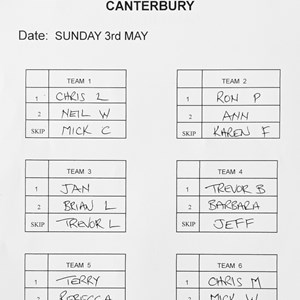 CANTERBURY
Date: SUNDAY 3rd MAY
TEAM 1
1 CHRIS L
2 NEIL W
SKIP MICK C
TEAM 2
1 RON P
2 ANN
SKIP KAREN F
TEAM 3
1 JAN
2 BRIAN L
SKIP TREVOR L
TEAM 4
1 TREVOR B
2 BARBARA
SKIP JEFF
TEAM 5
1 TERRY
2 REBECCA
TEAM 6
1 CHRIS M
2 MICK W